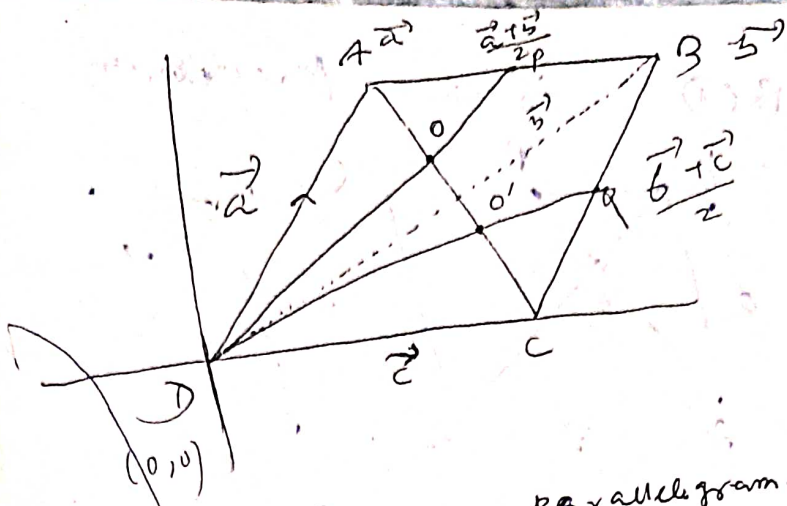 A a⃗
(a⃗ + b⃗)/2 P
B b⃗
O
b⃗
a⃗
O'
Q
(b⃗ + c⃗)/2
c⃗
C
D
(0,0)
parallelogram